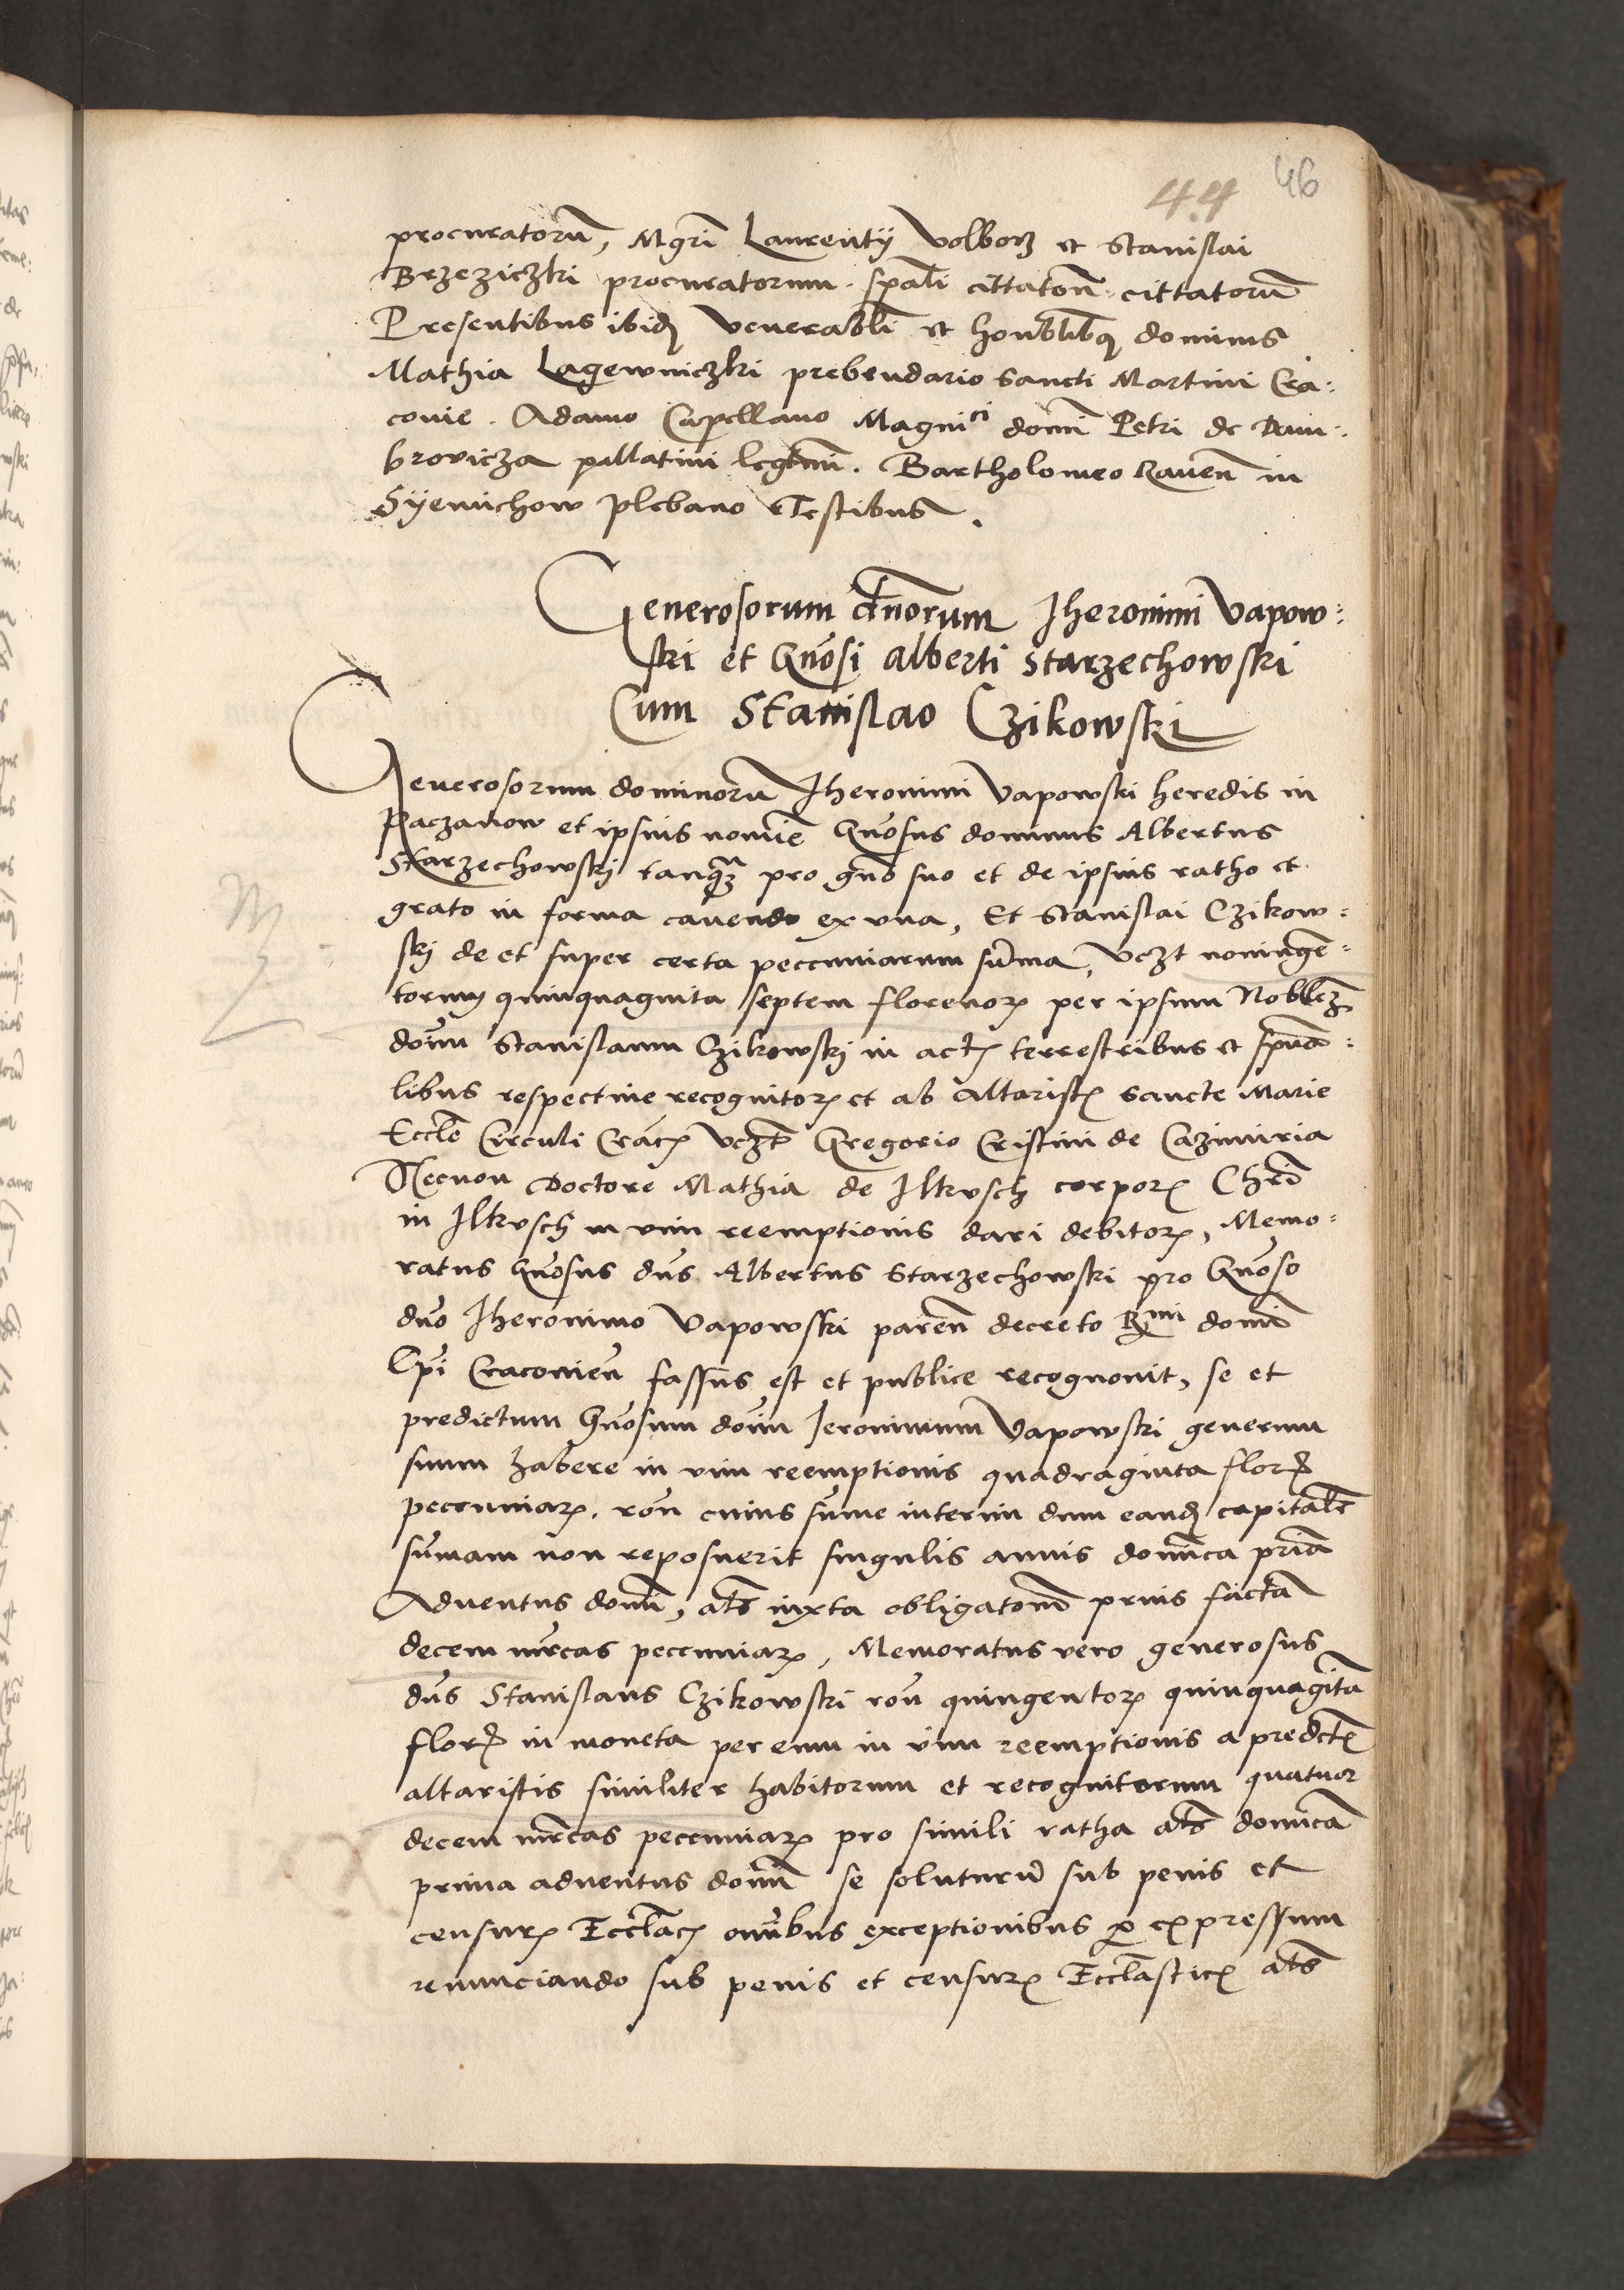 44 46
procuratorũ, Mgri Laurentij Volborz et Stanislai
Brzeziczki procuratorum. spali cittatoñ. cittatorũ
Presentibus ibid Venerabli et honblibq dominis
Mathia Lagewniczki prebendario Sancti Martini Cra:
covie. Adamo Capellano Magnici domi Petri de Dam:
brovicza pallatini. Bartholomeo Raveñ in
Syemichow plebano Testibus.
Generosorum dnorum Jheronimi Vapow:
ski et Gnosi Alberti Starzechowski
Cum Stanislao Czikowski
Generosorum dominorũ Jheronimi Vapowski heredis in
Paczanow et ipsius nomie Gnosus dominus Albertus
Starzechowskj tanqz pro gno suo et de ipsius ratho et
grato in forma cavendo ex una, Et Stanislai Czikow:
skj de et super certa peccuniarum suma, vczt noningē:
torum quinquaginta septem florenor per ipsum Noblez
dom Stanislaum Czikowskj in act terrestribus et spua:
libus respective recognitor et ab altarist Sancte Marie
Eccle Circuli Crac vczt Gregorio Cristini de Cazimiria
Necnon Doctore Mathia de Ilkvsch corpor Chri
in Ilkvsch in vim reemptionis dari debitor, Memo:
ratus Gnosus dns Albertus Starzechowski pro Gnoso
dno Jheronimo Vapowski pareñ decreto Rmi domi
Epi Cracovieñ fassus est et publice recognovit, se et
predictum Gnosum dom Jeronimum Vapowski generum
suum habere in vim reemptionis quadraginta flor
peccuniar. roñ cuius sume interim dum eand capitale
sumam non reposuerit singulis annis domica pria
Adventus domi, als iuxta obligatom prius facta
decem mrcas peccuniar, Memoratus vero generosus
dns Stanislaus Czikowski roñ quingentor quinquagita
flor in moneta per eum in vim reemptionis a predct
altaristis similiter habitorum et recognitorum quatuor
decem mrcas peccuniar pro simili ratha als domica
prima adventus domi se soluturũ sub penis et
censur Ecclac omibus exceptionibus p expressum
renunciando sub penis et censur Ecclastic als